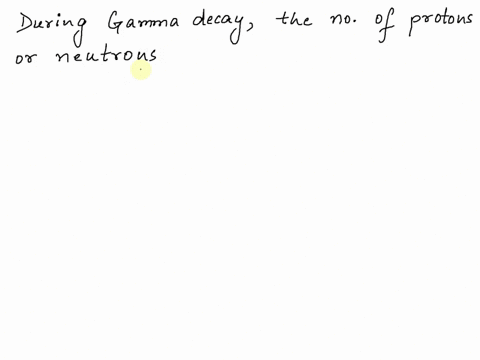 During Gamma decay, the no. of protons
or neutrons